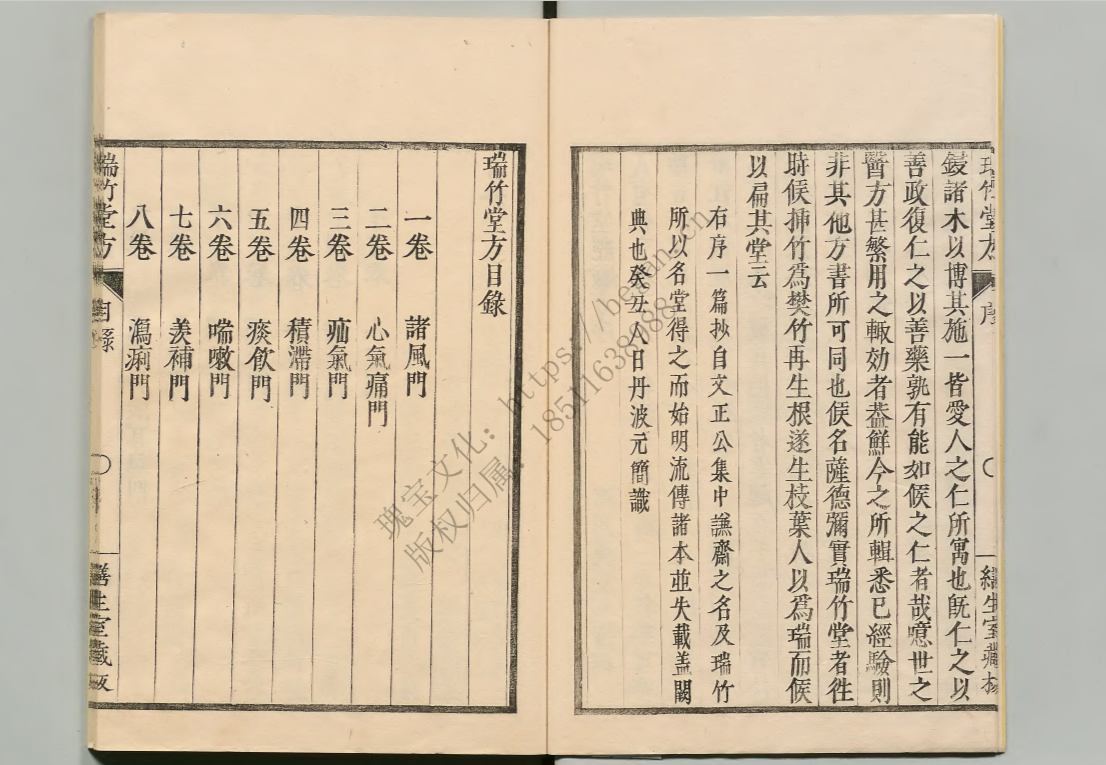 瑞竹堂方
序
○
繕生室藏板
鋟諸木以博其施一皆愛人之仁所寓也旣仁之以
善政復仁之以善藥孰有能如候之仁者哉噫世之
醫方甚繁用之輙効者葢鮮今之所輯悉已經驗則
非其他方書所可同也候名薩德彌實瑞竹堂者徃
時候揷竹爲樊竹再生根遂生枝葉人以爲瑞而候
以扁其堂云
右序一篇抄自文正公集中謙齋之名及瑞竹
所以名堂得之而始明流傳諸本並失載盖闕
典也癸丑人日丹波元簡識
瑞竹堂方目錄
一卷 諸風門
二卷 心氣痛門
三卷 疝氣門
四卷 積滯門
五卷 痰飮門
六卷 喘嗽門
七卷 羨補門
八卷 瀉痢門
瑞竹堂方
目錄
○
繕生室藏板
瑰宝文化：https://began.cn
版权归属：18511638988